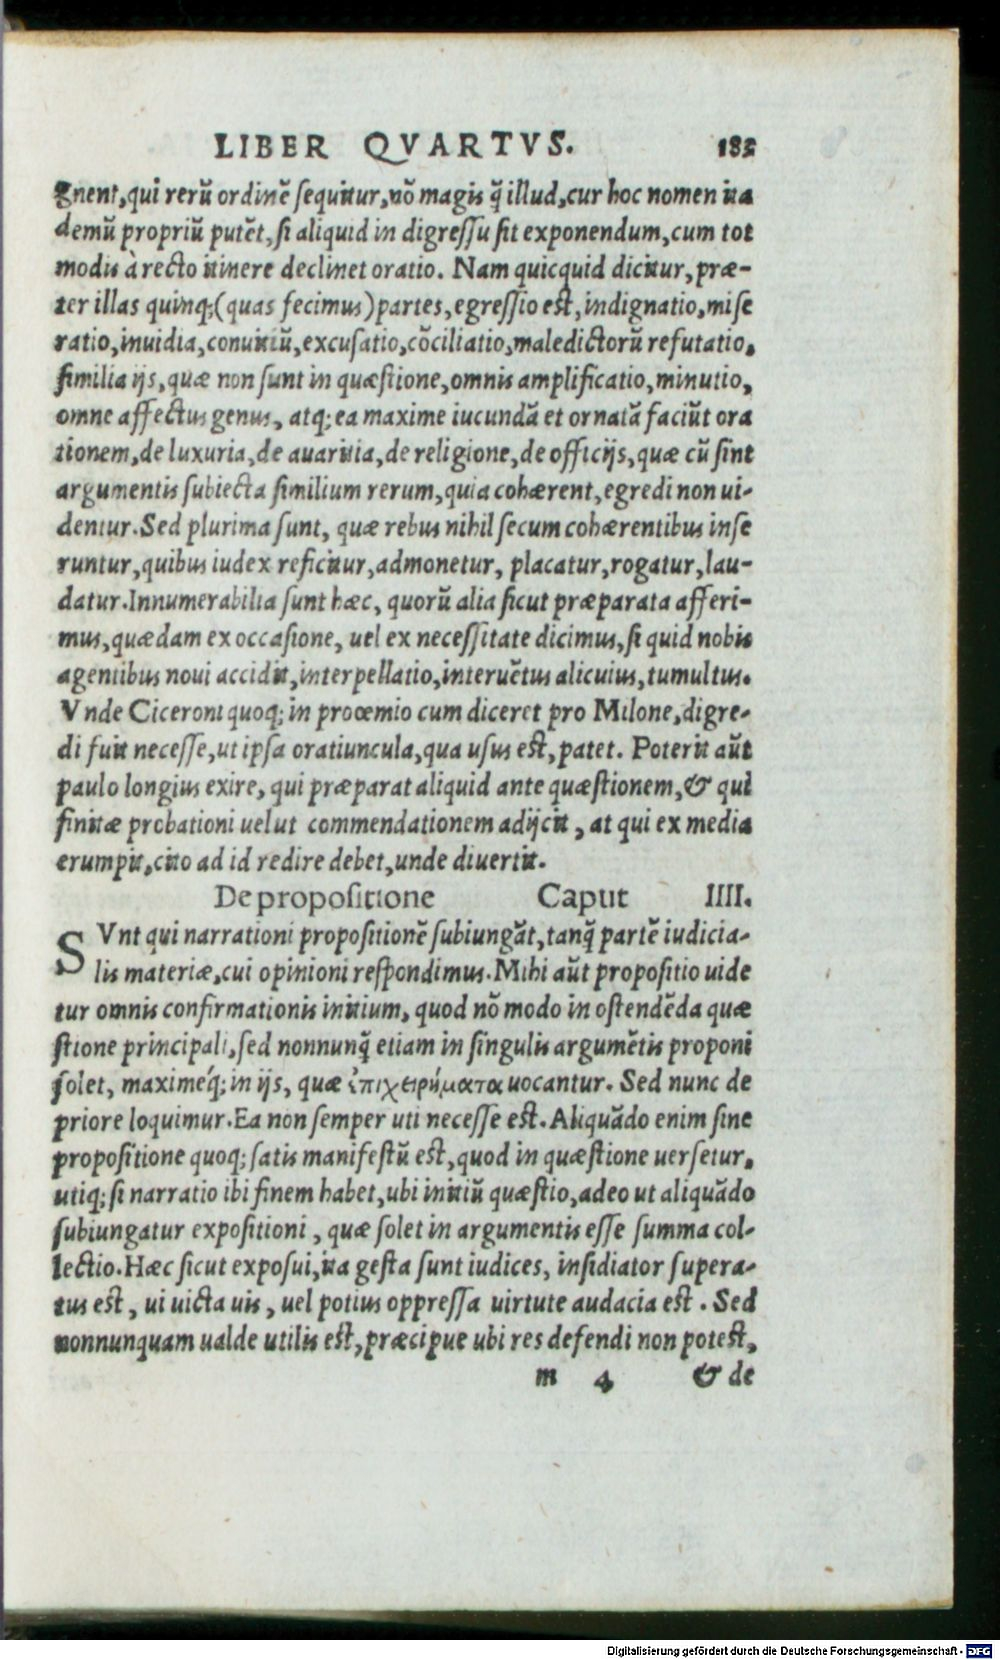 LIBER QVARTVS. 183
gnent, qui rerũ ordinẽ ſequitur, nõ magis q̃ illud, cur hoc nomen ita
demũ propriũ putẽt, ſi aliquid in digreſſu ſit exponendum, cum tot
modis à recto itinere declinet oratio. Nam quicquid dicitur, præ-
ter illas quinq; (quas fecimus) partes, egreſſio eſt, indignatio, miſe
ratio, inuidia, conuitiũ, excuſatio, cõciliatio, maledictorũ refutatio,
ſimilia ijs, quæ non ſunt in quæſtione, omnis amplificatio, minutio,
omne affectus genus, atq; ea maxime iucundã et ornatã faciũt ora
tionem, de luxuria, de auaritia, de religione, de officijs, quæ cũ ſint
argumentis ſubiecta ſimilium rerum, quia cohærent, egredi non ui-
dentur. Sed plurima ſunt, quæ rebus nihil ſecum cohærentibus inſe
runtur, quibus iudex reficitur, admonetur, placatur, rogatur, lau-
datur. Innumerabilia ſunt hæc, quorũ alia ſicut præparata afferi-
mus, quædam ex occaſione, uel ex neceſſitate dicimus, ſi quid nobis
agentibus noui accidit, interpellatio, interuẽtus alicuius, tumultus.
Vnde Ciceroni quoq; in prooemio cum diceret pro Milone, digre-
di fuit neceſſe, ut ipſa oratiuncula, qua uſus eſt, patet. Poterit aũt
paulo longius exire, qui præparat aliquid ante quæſtionem, & qui
finitæ probationi uelut commendationem adijcit, at qui ex media
erumpit, cito ad id redire debet, unde diuertit.
De propoſitione Caput IIII.
SVnt qui narrationi propoſitionẽ ſubiungãt, tanq̃ partẽ iudicia-
lis materiæ, cui opinioni reſpondimus. Mihi aũt propoſitio uide
tur omnis confirmationis initium, quod nõ modo in oſtendẽda quæ
ſtione principali, ſed nonnunq̃ etiam in ſingulis argumẽtis proponi
ſolet, maximeq́; in ijs, quæ ἐπιχειρήματα uocantur. Sed nunc de
priore loquimur. Ea non ſemper uti neceſſe eſt. Aliquãdo enim ſine
propoſitione quoq; ſatis manifeſtũ eſt, quod in quæſtione uerſetur,
utiq; ſi narratio ibi finem habet, ubi initiũ quæſtio, adeo ut aliquãdo
ſubiungatur expoſitioni, quæ ſolet in argumentis eſſe ſumma col-
lectio. Hæc ſicut expoſui, ita geſta ſunt iudices, inſidiator ſupera-
tus eſt, ui uicta uis, uel potius oppreſſa uirtute audacia eſt. Sed
nonnunquam ualde utilis eſt, præcipue ubi res defendi non poteſt,
m 4 & de
Digitalisierung gefördert durch die Deutsche Forschungsgemeinschaft - DFG